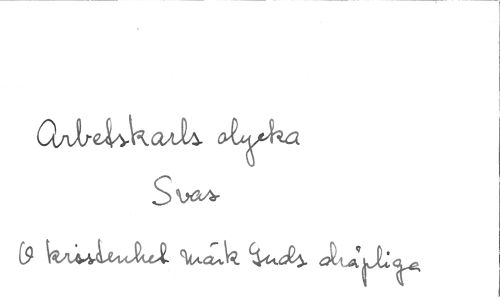 Arbetskarls olycka
Svas
O kristenhet märk Guds dråpliga